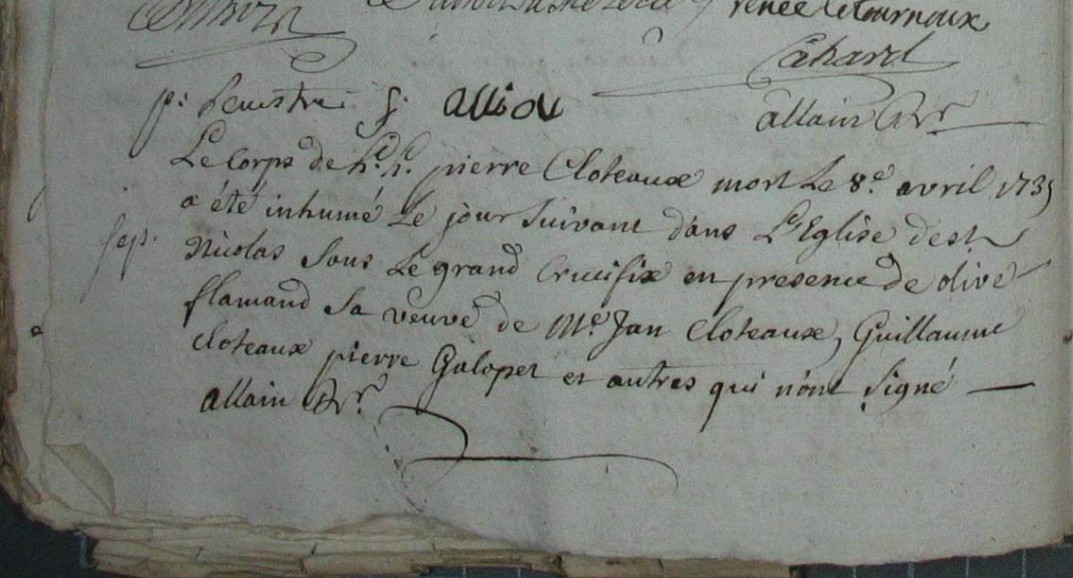 renée letournoux
Cahard
p: fenestre g: alliou
allain Rr
Le Corps de h.e h. pierre Cloteaux mort Le 8.e avril 1735
a été inhumé Le jour Suivant dans L'Eglise de st
sep. Nicolas Sous Le grand Crucifix en presence de olive
flamand Sa veuve de Me Jan Cloteaux, Guillaume
Cloteaux pierre Galopet et autres qui n'ont Signé
allain Rr